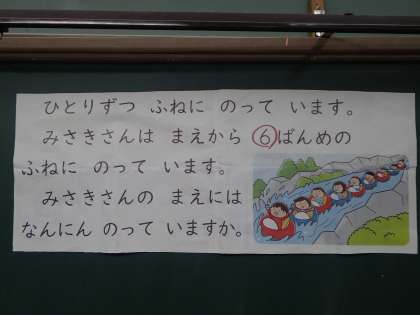 ひとりずつ ふねに のって います。
みさきさんは まえから ⑥ばんめの
ふねに のって います。
みさきさんの まえには
なんにん のって いますか。